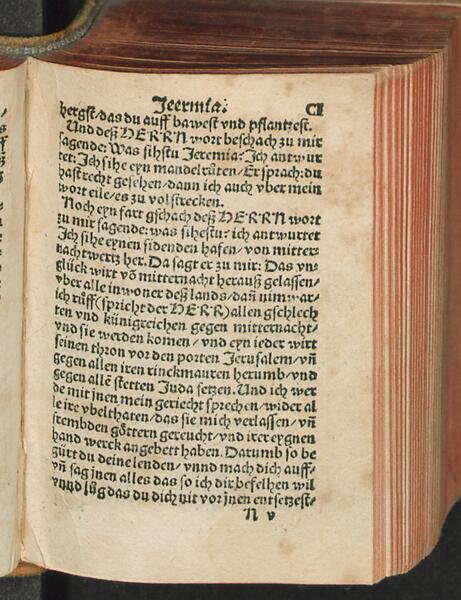 Jeremia. CI
bergst/ das du auff bawest vnd pflantzest.
Und deß HERRN wort beschach zu mir
sagende: Was sihstu Jeremia? Ich antwur
tet: Ich sihe eyn mandelrůten/ Er sprach: du
hast recht gesehen/ dann ich auch vber mein
wort eile/ es zu volstrecken.
Noch eyn fart gschach deß HERRN wort
zu mir sagende: was sihestu? ich antwurtet
Ich sihe eynen sidenden hafen/ von mitter-
nachtwertz her. Da sagt er zu mir: Das vn-
glück wirt võ mitternacht herauß gelassen/
vber alle inwoner deß lands/ dañ nim war/
ich růff (spricht der HERR) allen gschlech
ten vnd künigreichen gegen mitternacht/
vnd sie werden komen/ vnd eyn ieder wirt
seinen thron vor den porten Jerusalem/ vñ
gegen allen iren rinckmauren herumb/ vnd
gegen allẽ stetten Juda setzen. Und ich wer
de mit jnen mein geriecht sprechen/ wider al
le ire vbelthaten/ das sie mich verlassen/ vñ
frembden göttern gereucht/ vnd irer eygnen
hand werck angebett haben. Darumb so be
gürt du deine lenden/ vnnd mach dich auff/
vñ sag jnen alles das so ich dir befelhen wil
vnnd lůg das du dich nit vor jnen entsetzest/
N v